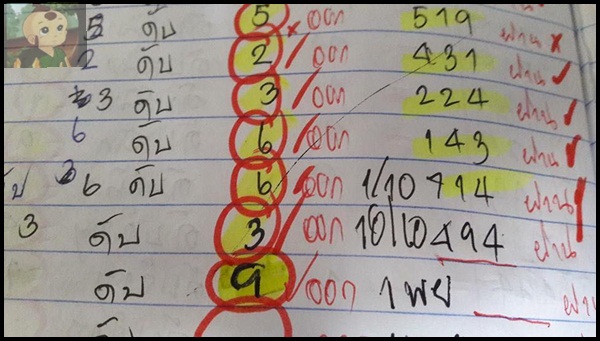 5 ดับ 5 / ออก 519 ผ่าน x
2 ดับ 2 x / ออก 431 ผ่าน ✓
3 ดับ 3 / ออก 224 ผ่าน ✓
6 ดับ 6 / ออก 143 ผ่าน ✓
6 ดับ 6 / ออก 1/10 714 ผ่าน
3 ดับ 3 / ออก 494 ผ่าน
ดับ 9 / ออก 1 พย